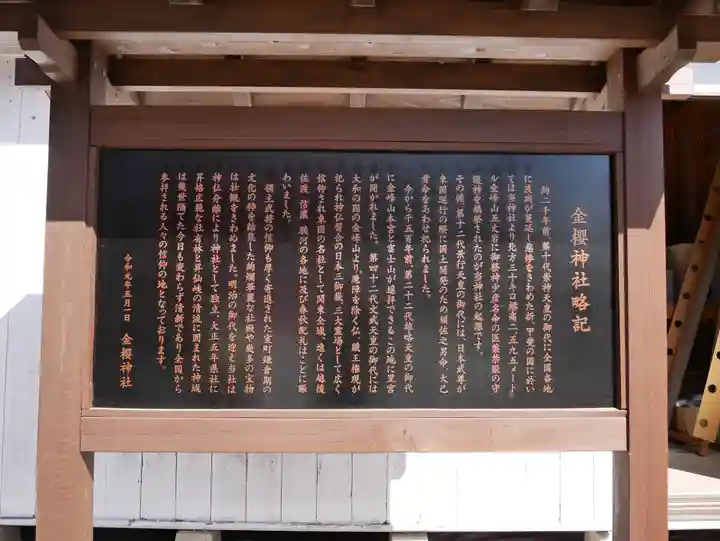 金櫻神社略記
約二千年前、第十代崇神天皇の御代に全国各地
に疫病が蔓延し悲惨をきわめた折、甲斐の国に於い
ては当神社より北方三十キロ標高二、五九五メート
ル金峰山五丈岩に御祭神少彦名命の医薬禁厭の守
護神を鎮祭されたのが当神社の起源です。
その後、第十二代景行天皇の御代には、日本武尊が
東国巡行の際に国土開発のため須佐之男命、大己
貴命をあわせ祀られました。
今から千五百年前、第二十二代雄略天皇の御代
に金峰山本宮と富士山が遥拝できるこの地に里宮
が開かれました。第四十二代文武天皇の御代には
大和の国の金峰山より、魔障を除く仏、蔵王権現が
祀られ神仏習合の日本三御嶽、三大霊場として広く
信仰され東国の名社として関東全域、遠くは越後
佐渡、信濃、駿河の各地に及び春秋配札はことに賑
わいました。
領主武将の信仰も厚く寄進された室町、鎌倉期の
文化の粋を結集した絢爛華麗な社殿や数多の宝物
は社観をきわめました。明治の御代を迎え当社は
神仏分離により神社として独立、大正五年県社に
昇格広範な社有林と昇仙峡の清流に囲まれた神域
は幾世隔てた今日も変わらず清新であり全国から
参拝される人々の信仰の地となっております。
令和元年五月一日
金櫻神社